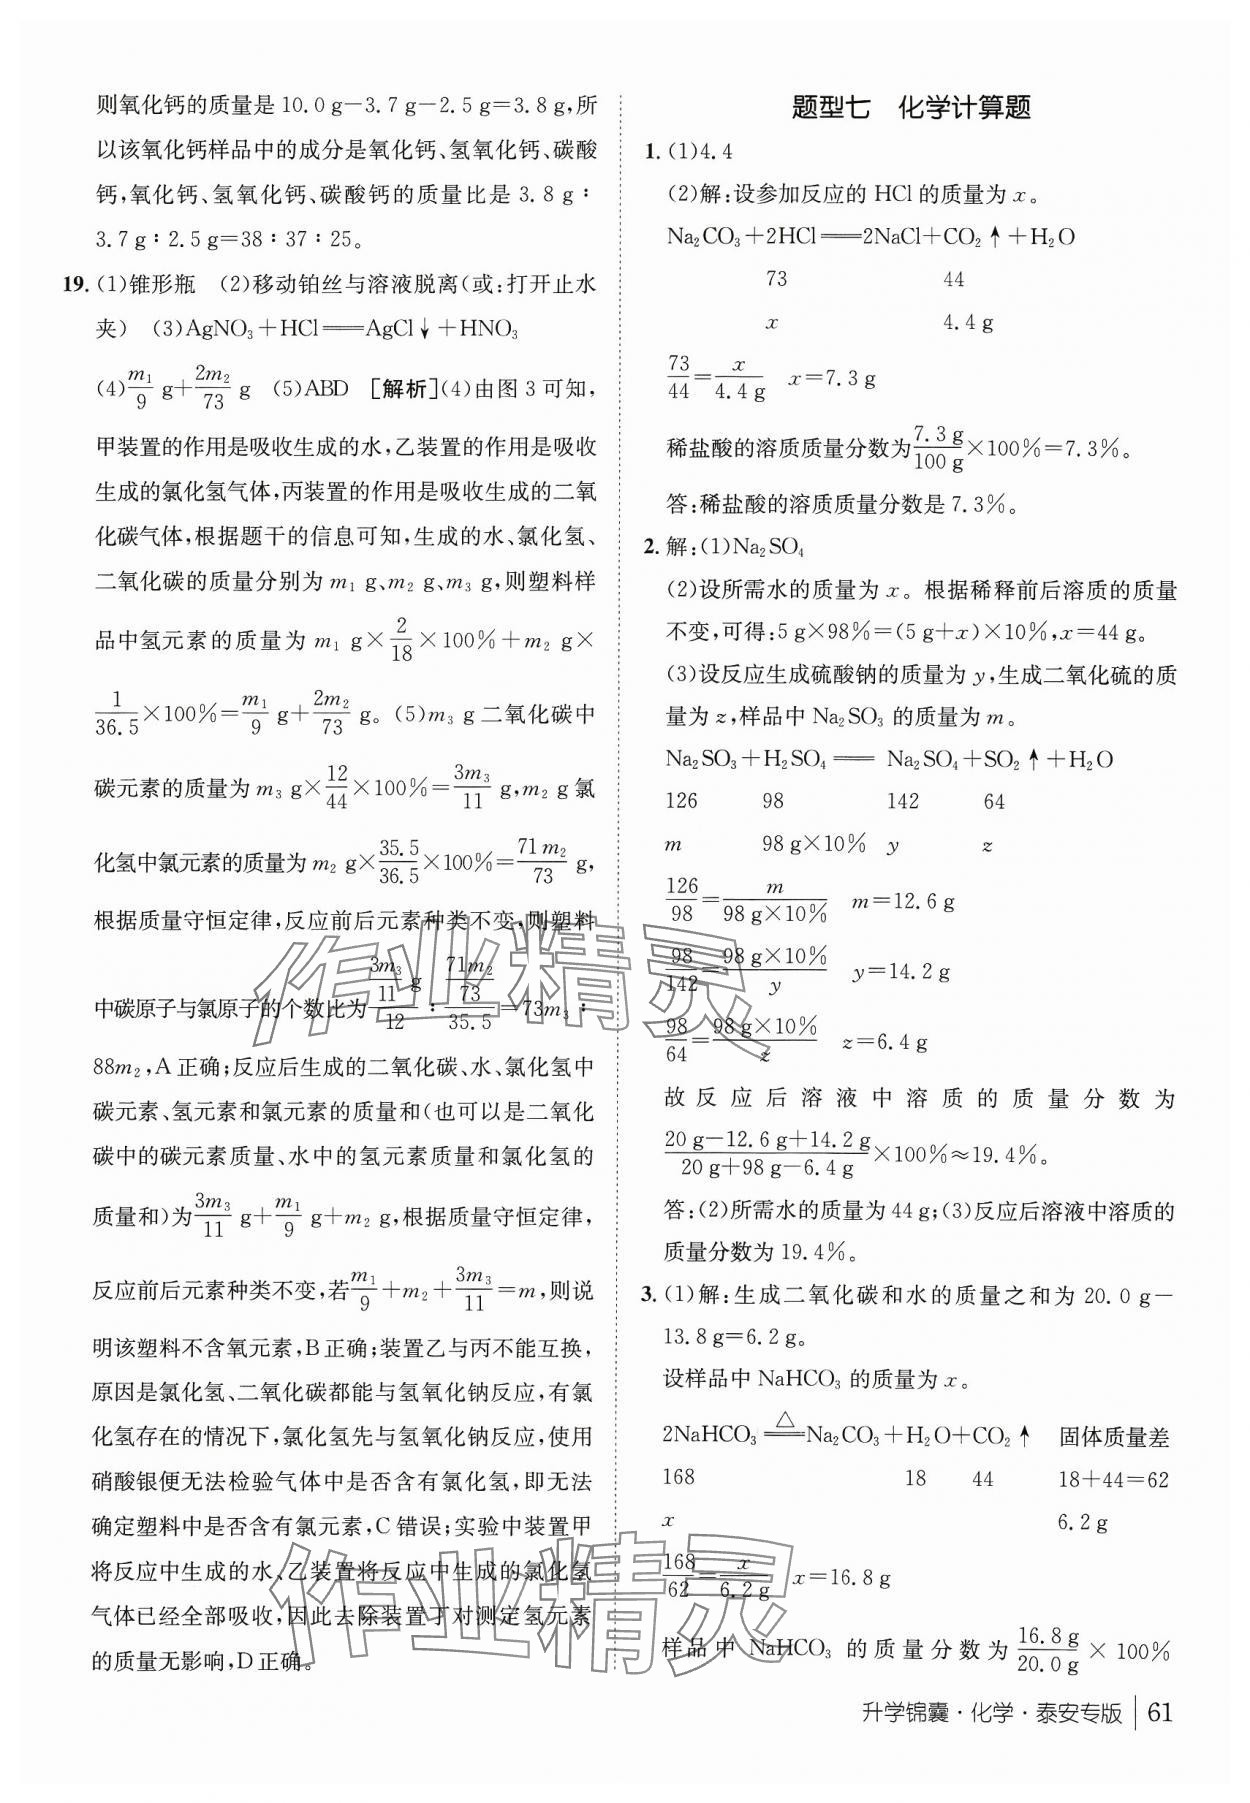 则氧化钙的质量是 10.0 g−3.7 g−2.5 g=3.8 g,所
以该氧化钙样品中的成分是氧化钙、氢氧化钙、碳酸
钙,氧化钙、氢氧化钙、碳酸钙的质量比是 3.8 g∶
3.7 g∶2.5 g=38∶37∶25。
19. (1)锥形瓶 (2)移动铂丝与溶液脱离(或:打开止水
夹) (3)AgNO₃+HCl══AgCl↓+HNO₃
(4)m₁/9 g+2m₂/73 g (5)ABD [解析](4)由图 3 可知,
甲装置的作用是吸收生成的水,乙装置的作用是吸收
生成的氯化氢气体,丙装置的作用是吸收生成的二氧
化碳气体,根据题干的信息可知,生成的水、氯化氢、
二氧化碳的质量分别为 m₁ g、m₂ g、m₃ g,则塑料样
品中氢元素的质量为 m₁ g×2/18×100%+m₂ g×
1/36.5×100%=m₁/9 g+2m₂/73 g。(5)m₃ g 二氧化碳中
碳元素的质量为 m₃ g×12/44×100%=3m₃/11 g,m₂ g 氯
化氢中氯元素的质量为 m₂ g×35.5/36.5×100%=71m₂/73 g,
根据质量守恒定律,反应前后元素种类不变,则塑料
中碳原子与氯原子的个数比为 (3m₃/11 g)/12∶(71m₂/73)/35.5=73m₃∶
88m₂,A 正确;反应后生成的二氧化碳、水、氯化氢中
碳元素、氢元素和氯元素的质量和(也可以是二氧化
碳中的碳元素质量、水中的氢元素质量和氯化氢的
质量和)为3m₃/11 g+m₁/9 g+m₂ g,根据质量守恒定律,
反应前后元素种类不变,若m₁/9+m₂+3m₃/11=m,则说
明该塑料不含氧元素,B 正确;装置乙与丙不能互换,
原因是氯化氢、二氧化碳都能与氢氧化钠反应,有氯
化氢存在的情况下,氯化氢先与氢氧化钠反应,使用
硝酸银便无法检验气体中是否含有氯化氢,即无法
确定塑料中是否含有氯元素,C 错误;实验中装置甲
将反应中生成的水、乙装置将反应中生成的氯化氢
气体已经全部吸收,因此去除装置丁对测定氢元素
的质量无影响,D 正确。
题型七 化学计算题
1. (1)4.4
(2)解:设参加反应的 HCl 的质量为 x。
Na₂CO₃+2HCl══2NaCl+CO₂↑+H₂O
73 44
x 4.4 g
73/44=x/4.4 g x=7.3 g
稀盐酸的溶质质量分数为7.3 g/100 g×100%=7.3%。
答:稀盐酸的溶质质量分数是 7.3%。
2. 解:(1)Na₂SO₄
(2)设所需水的质量为 x。根据稀释前后溶质的质量
不变,可得:5 g×98%=(5 g+x)×10%,x=44 g。
(3)设反应生成硫酸钠的质量为 y,生成二氧化硫的质
量为 z,样品中 Na₂SO₃ 的质量为 m。
Na₂SO₃+H₂SO₄══ Na₂SO₄+SO₂↑+H₂O
126 98 142 64
m 98 g×10% y z
126/98=m/98 g×10% m=12.6 g
98/142=98 g×10%/y y=14.2 g
98/64=98 g×10%/z z=6.4 g
故反应后溶液中溶质的质量分数为
20 g−12.6 g+14.2 g/20 g+98 g−6.4 g×100%≈19.4%。
答:(2)所需水的质量为 44 g;(3)反应后溶液中溶质的
质量分数为 19.4%。
3. (1)解:生成二氧化碳和水的质量之和为 20.0 g−
13.8 g=6.2 g。
设样品中 NaHCO₃ 的质量为 x。
2NaHCO₃ ══△ Na₂CO₃+H₂O+CO₂↑ 固体质量差
168 18 44 18+44=62
x 6.2 g
168/62=x/6.2 g x=16.8 g
样品中 NaHCO₃ 的质量分数为16.8 g/20.0 g×100%
升学锦囊·化学·泰安专版 61
作业精灵
作业精灵